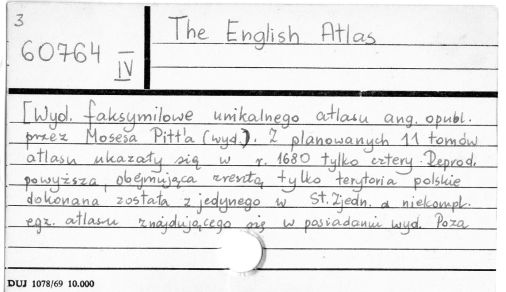 3
60764 IV
The English Atlas
[Wyd. faksymilowe unikalnego atlasu ang. opubl.
przez Mosesa Pitt'a (wyd.). Z planowanych 11 tomów
atlasu ukazały się w r. 1680 tylko cztery. Reprod.
powyższa, obejmująca zresztą tylko terytoria polskie
dokonana została z jedynego w St. Zjedn. a niekompl.
egz. atlasu znajdującego się w posiadaniu wyd. Poza
DUJ 1078/69 10.000